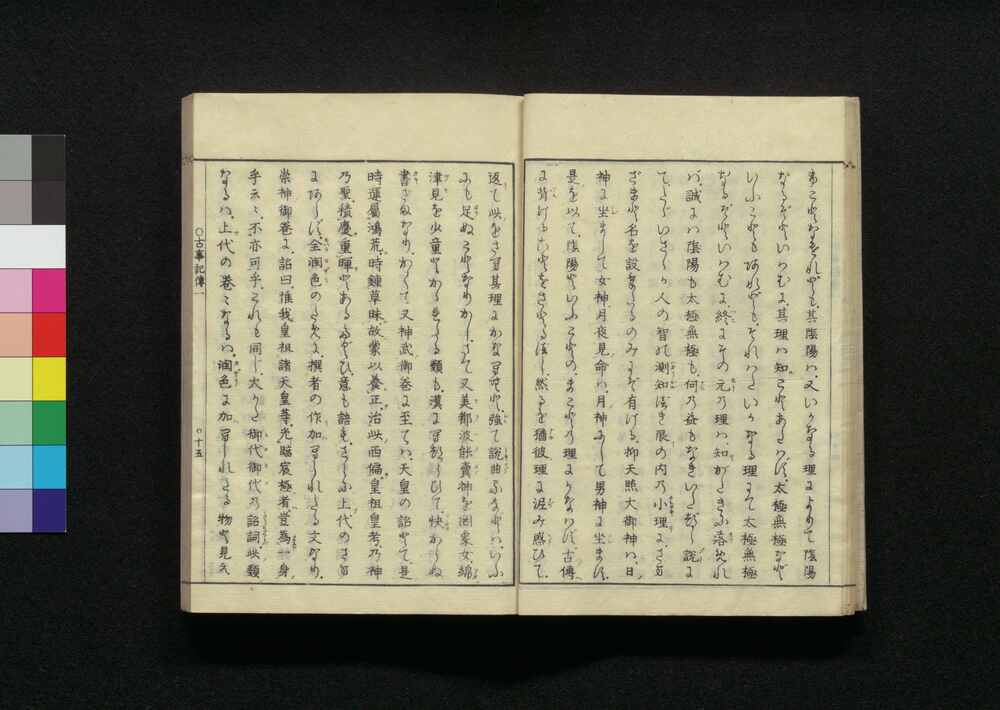 まことなきをそれやも、其陰陽は、又いかなる理によりて陰陽
なるぞといはむに、其理は知ことあたはず、太極無極など
いふことも有れども、それはたいかなる理にて太極無極
なるぞといはむに、終にその元の理は、知がたきに落めれ
ば、誠には陰陽も太極無極も、何の益もなきいたづら説に
て、たゞいさゝか人の智の測知べき限の内の小理に、さま
ざまと名を設なしたるのみにぞ有ける、抑天照大御神は、日
神に坐まして女神、月夜見命は月神にして男神に坐ます、
是を以て、陰陽といふことの、まことの理にかなはず、古傳
に背けることをさとるべし、然るを猶彼理に泥み惑ひて、
返て此をさへ其理にかなへむと、強て説曲ふなどは、いふ
にも足ぬことなりかし、さて又美都波能賣神を罔象女、綿
津見を少童とかゝれたる類も、漢にへつらひて、快からぬ
書ざまなり、かくて又神武御卷に至ては、天皇の詔とて、是
時運屬鴻荒、時鍾草昧、故蒙以養正、治此西偏、皇祖皇考、乃神
乃聖、積慶重暉とあるなどは、意も語も、さらに上代のさま
にあらず、全潤色のために、撰者の作加へられたる文なり、
崇神御卷に、詔曰、惟我皇祖諸天皇等、光臨宸極者、豈爲一身
乎云々、不亦可乎、これも同じ、大かた御代御代の詔詞、此類
なるは、上代の卷々なるは、潤色に加へられたる物と見え
○古事記傳一
○十五